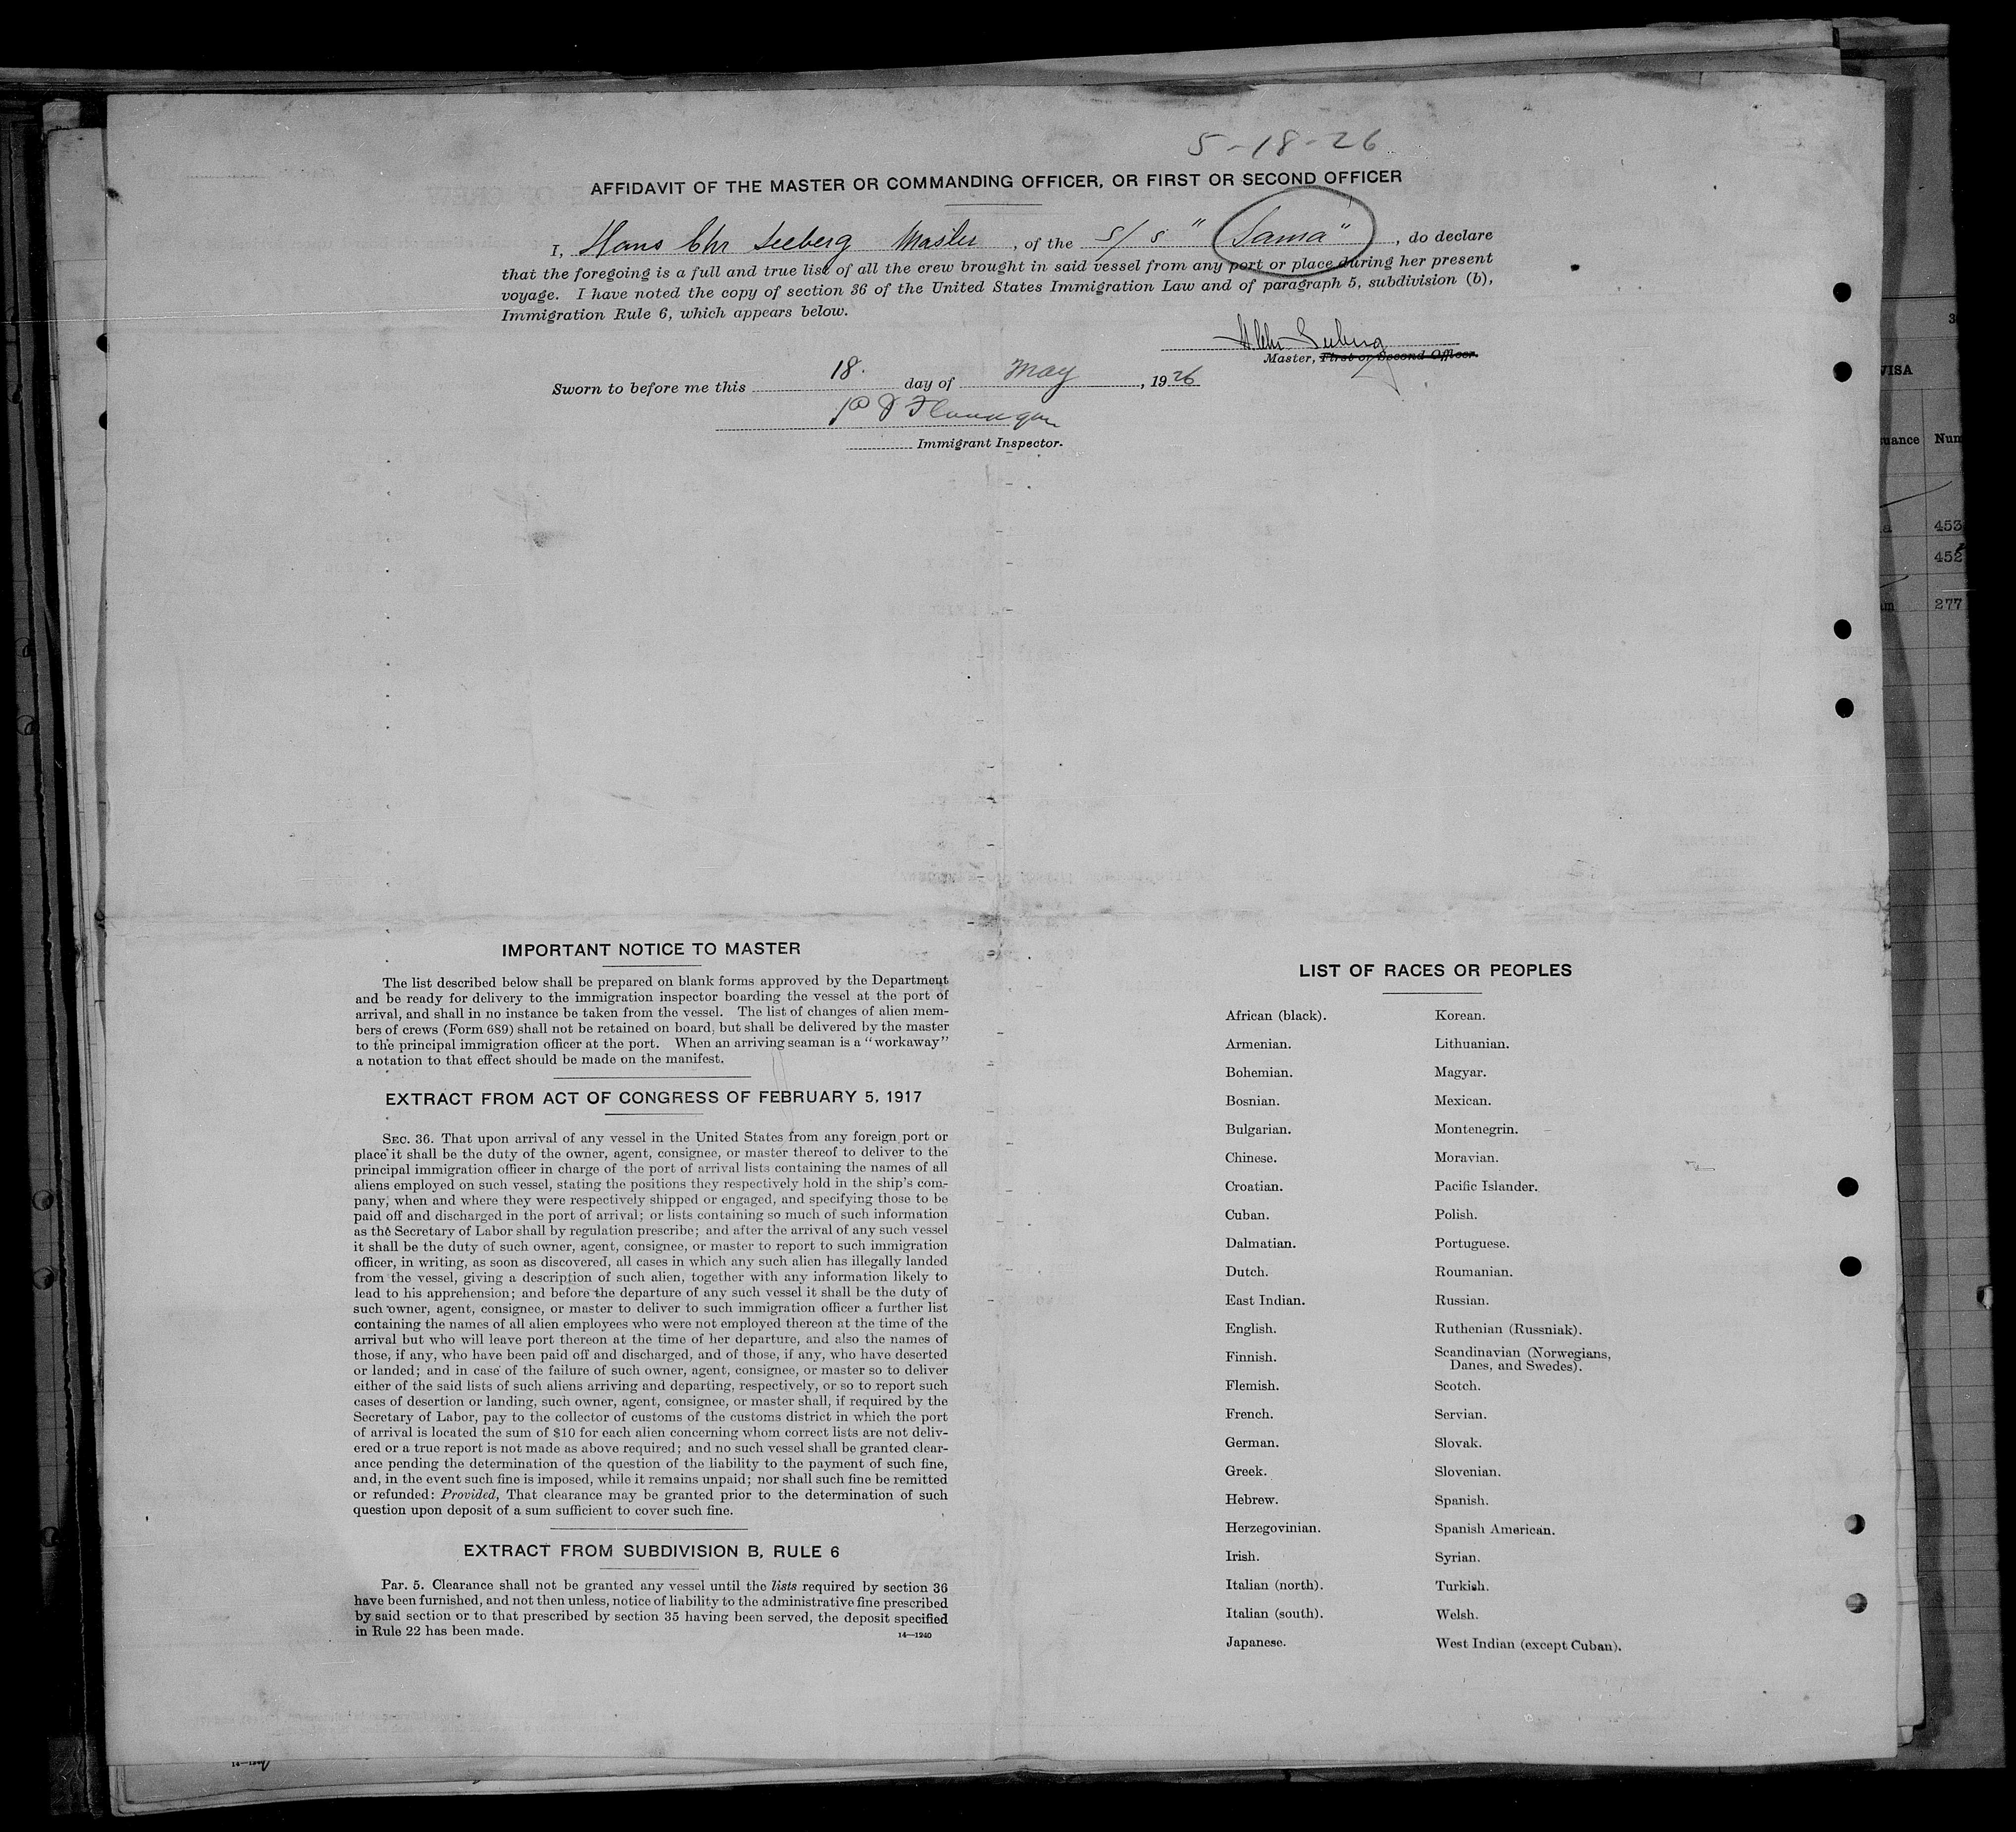 5-18-26
AFFIDAVIT OF THE MASTER OR COMMANDING OFFICER, OR FIRST OR SECOND OFFICER
I, Hans Chr Seeberg Master, of the S/S "Sama", do declare
that the foregoing is a full and true list of all the crew brought in said vessel from any port or place during her present
voyage. I have noted the copy of section 36 of the United States Immigration Law and of paragraph 5, subdivision (b),
Immigration Rule 6, which appears below.
H Chr Seeberg
Master, First or Second Officer.
Sworn to before me this 18. day of May, 1926
P J Flannagan
Immigrant Inspector.
IMPORTANT NOTICE TO MASTER
The list described below shall be prepared on blank forms approved by the Department
and be ready for delivery to the immigration inspector boarding the vessel at the port of
arrival, and shall in no instance be taken from the vessel. The list of changes of alien mem-
bers of crews (Form 689) shall not be retained on board, but shall be delivered by the master
to the principal immigration officer at the port. When an arriving seaman is a "workaway"
a notation to that effect should be made on the manifest.
EXTRACT FROM ACT OF CONGRESS OF FEBRUARY 5, 1917
SEC. 36. That upon arrival of any vessel in the United States from any foreign port or
place it shall be the duty of the owner, agent, consignee, or master thereof to deliver to the
principal immigration officer in charge of the port of arrival lists containing the names of all
aliens employed on such vessel, stating the positions they respectively hold in the ship's com-
pany, when and where they were respectively shipped or engaged, and specifying those to be
paid off and discharged in the port of arrival; or lists containing so much of such information
as the Secretary of Labor shall by regulation prescribe; and after the arrival of any such vessel
it shall be the duty of such owner, agent, consignee, or master to report to such immigration
officer, in writing, as soon as discovered, all cases in which any such alien has illegally landed
from the vessel, giving a description of such alien, together with any information likely to
lead to his apprehension; and before the departure of any such vessel it shall be the duty of
such owner, agent, consignee, or master to deliver to such immigration officer a further list
containing the names of all alien employees who were not employed thereon at the time of the
arrival but who will leave port thereon at the time of her departure, and also the names of
those, if any, who have been paid off and discharged, and of those, if any, who have deserted
or landed; and in case of the failure of such owner, agent, consignee, or master so to deliver
either of the said lists of such aliens arriving and departing, respectively, or so to report such
cases of desertion or landing, such owner, agent, consignee, or master shall, if required by the
Secretary of Labor, pay to the collector of customs of the customs district in which the port
of arrival is located the sum of $10 for each alien concerning whom correct lists are not deliv-
ered or a true report is not made as above required; and no such vessel shall be granted clear-
ance pending the determination of the question of the liability to the payment of such fine,
and, in the event such fine is imposed, while it remains unpaid; nor shall such fine be remitted
or refunded: Provided, That clearance may be granted prior to the determination of such
question upon deposit of a sum sufficient to cover such fine.
EXTRACT FROM SUBDIVISION B, RULE 6
Par. 5. Clearance shall not be granted any vessel until the lists required by section 36
have been furnished, and not then unless, notice of liability to the administrative fine prescribed
by said section or to that prescribed by section 35 having been served, the deposit specified
in Rule 22 has been made.
14—1240
LIST OF RACES OR PEOPLES
African (black).
Armenian.
Bohemian.
Bosnian.
Bulgarian.
Chinese.
Croatian.
Cuban.
Dalmatian.
Dutch.
East Indian.
English.
Finnish.
Flemish.
French.
German.
Greek.
Hebrew.
Herzegovinian.
Irish.
Italian (north).
Italian (south).
Japanese.
Korean.
Lithuanian.
Magyar.
Mexican.
Montenegrin.
Moravian.
Pacific Islander.
Polish.
Portuguese.
Roumanian.
Russian.
Ruthenian (Russniak).
Scandinavian (Norwegians,
Danes, and Swedes).
Scotch.
Servian.
Slovak.
Slovenian.
Spanish.
Spanish American.
Syrian.
Turkish.
Welsh.
West Indian (except Cuban).
VISA
453
452
277